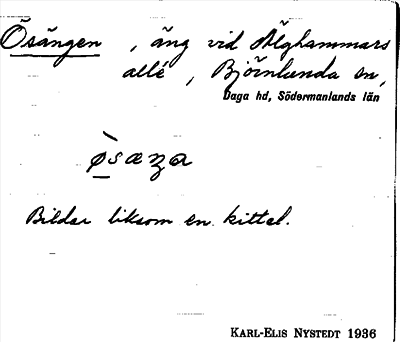 Ösängen, äng vid Älghammars
allé, Björnlunda sn,
Daga hd, Södermanlands län
ø̀sæŋa
Bildar liksom en kittel.
KARL-ELIS NYSTEDT 1936